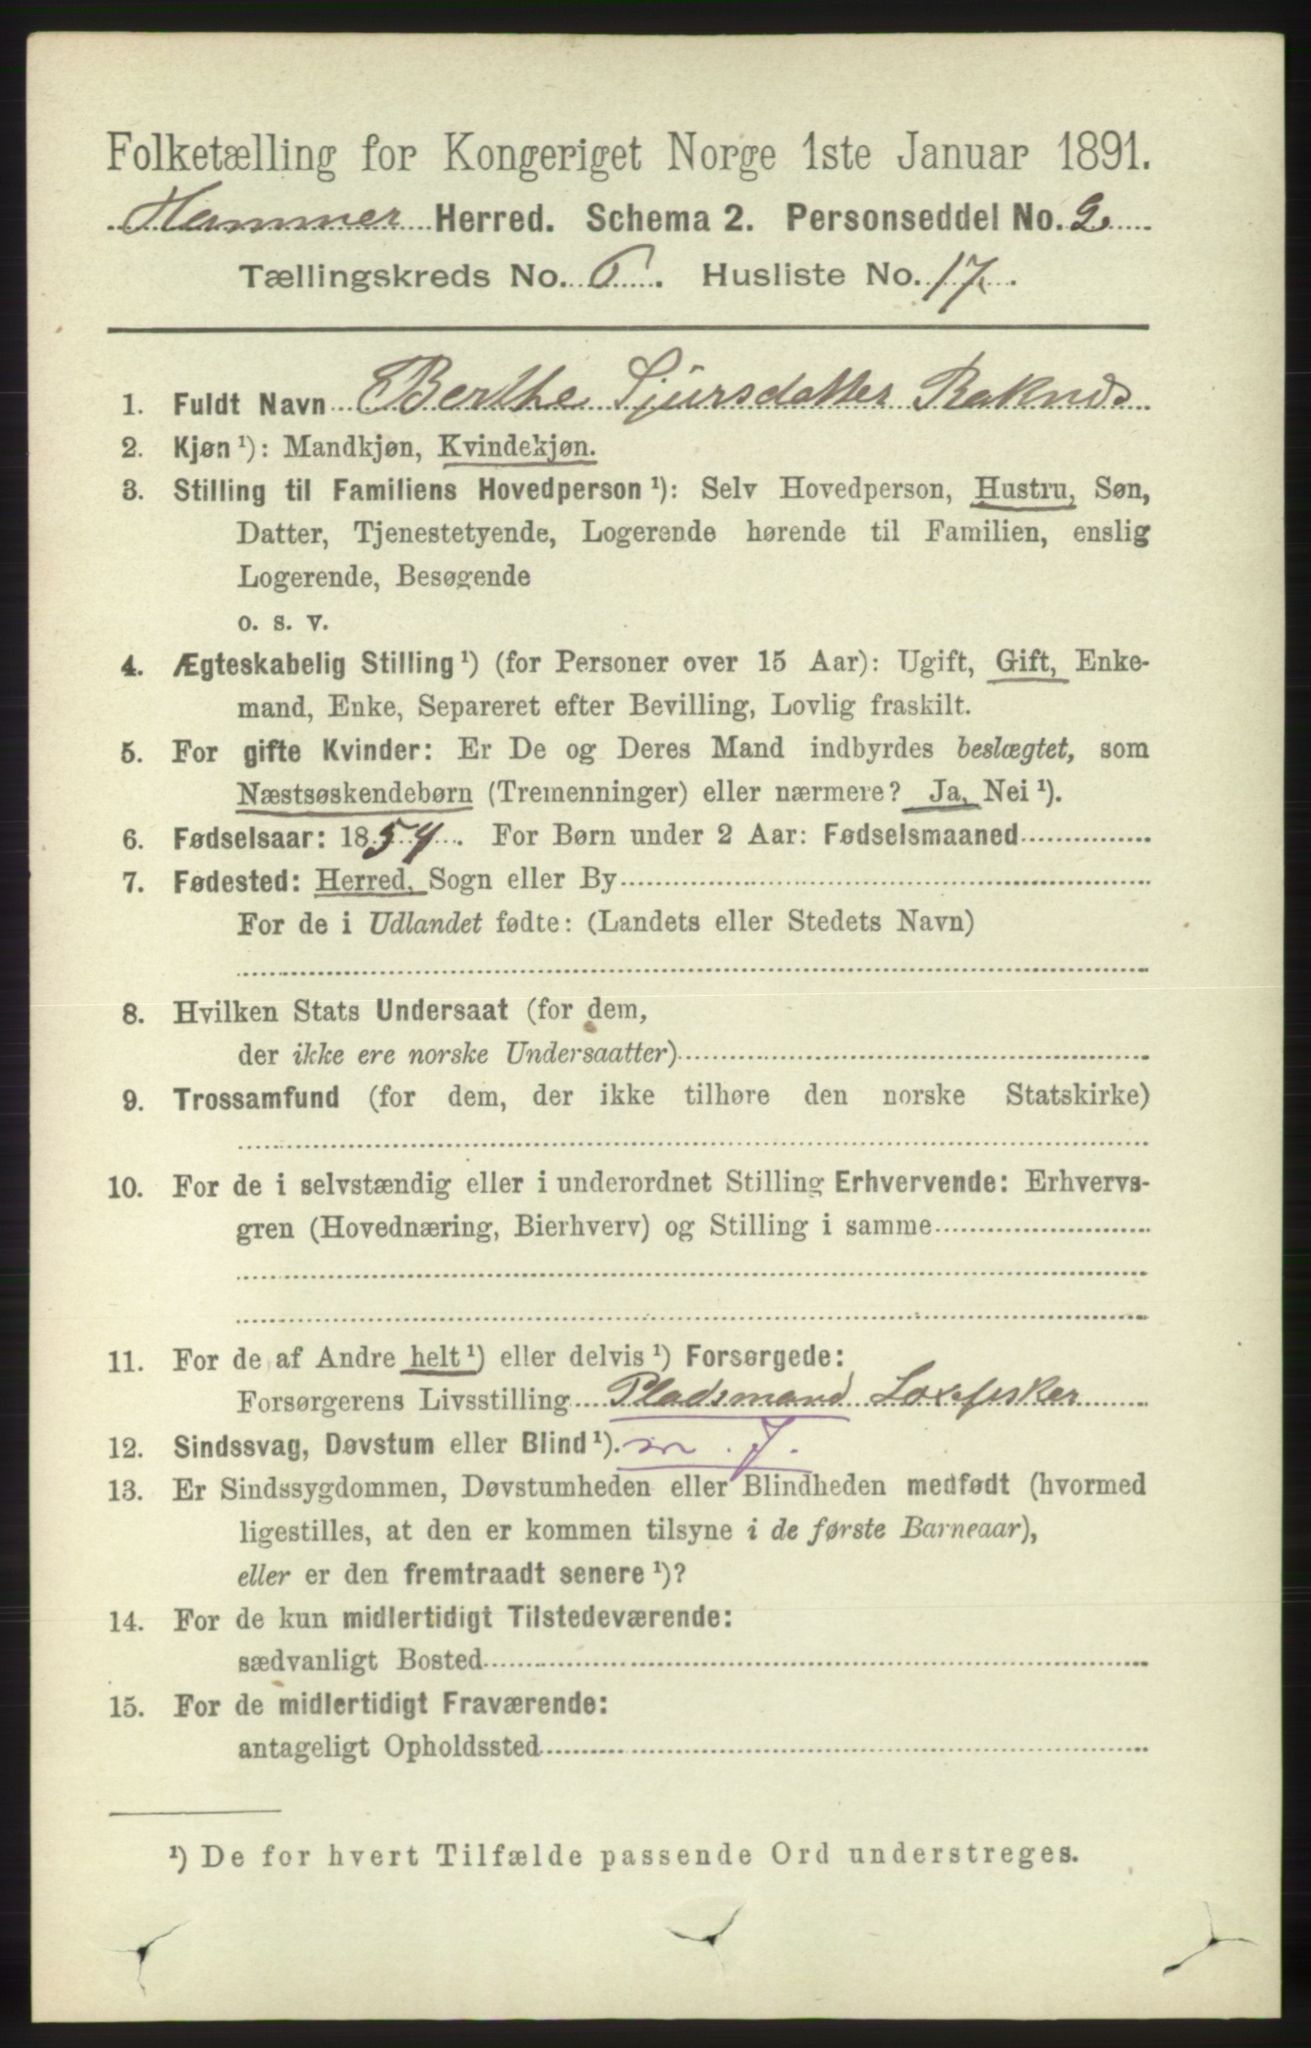 Folketælling for Kongeriget Norge 1ste Januar 1891.
Hammer Herred. Schema 2. Personseddel No. 2
Tællingskreds No. 6. Husliste No. 17.
1. Fuldt Navn Berthe Sjursdatter Raknes
2. Kjøn ¹): Mandkjøn, Kvindekjøn.
3. Stilling til Familiens Hovedperson ¹): Selv Hovedperson, Hustru, Søn,
Datter, Tjenestetyende, Logerende hørende til Familien, enslig
Logerende, Besøgende
o. s. v.
4. Ægteskabelig Stilling ¹) (for Personer over 15 Aar): Ugift, Gift, Enke-
mand, Enke, Separeret efter Bevilling, Lovlig fraskilt.
5. For gifte Kvinder: Er De og Deres Mand indbyrdes beslægtet, som
Næstsøskendebørn (Tremenninger) eller nærmere? Ja, Nei ¹).
6. Fødselsaar: 1854. For Børn under 2 Aar: Fødselsmaaned
7. Fødested: Herred, Sogn eller By
For de i Udlandet fødte: (Landets eller Stedets Navn)
8. Hvilken Stats Undersaat (for dem,
der ikke ere norske Undersaatter)
9. Trossamfund (for dem, der ikke tilhøre den norske Statskirke)
10. For de i selvstændig eller i underordnet Stilling Erhvervende: Erhvervs-
gren (Hovednæring, Bierhverv) og Stilling i samme
11. For de af Andre helt ¹) eller delvis ¹) Forsørgede:
Forsørgerens Livsstilling Pladsmand Laxefisker
12. Sindssvag, Døvstum eller Blind ¹). m. J.
13. Er Sindssygdommen, Døvstumheden eller Blindheden medfødt (hvormed
ligestilles, at den er kommen tilsyne i de første Barneaar),
eller er den fremtraadt senere ¹)?
14. For de kun midlertidigt Tilstedeværende:
sædvanligt Bosted
15. For de midlertidigt Fraværende:
antageligt Opholdssted
¹) De for hvert Tilfælde passende Ord understreges.